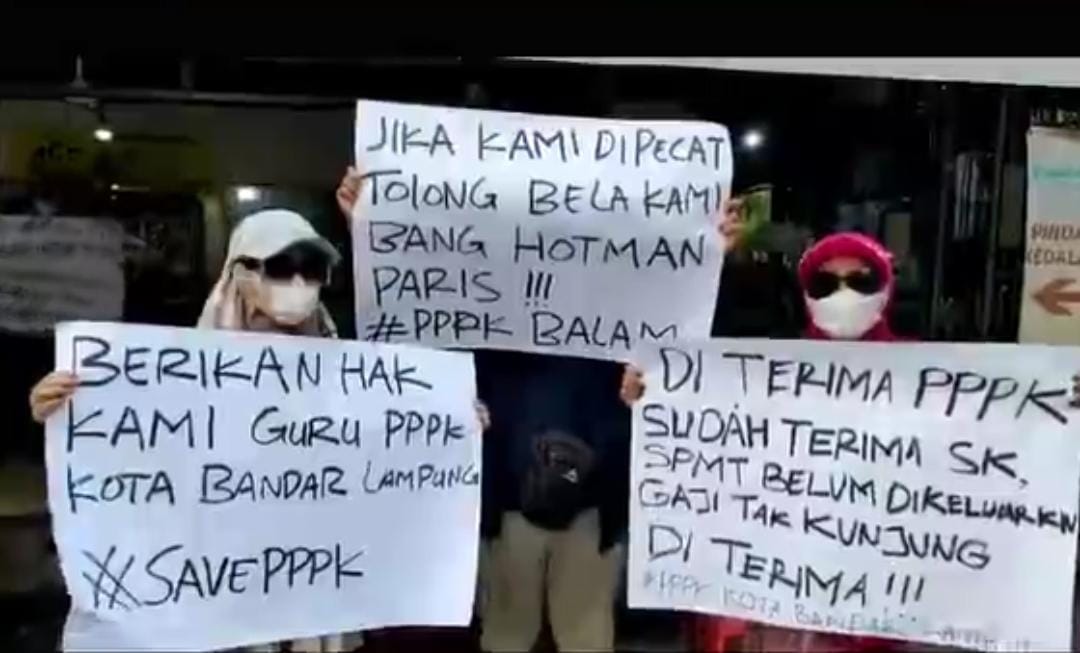 JIKA KAMI DIPECAT
TOLONG BELA KAMI
BANG HOTMAN
PARIS !!!
#PPPK BALAM
BERIKAN HAK
KAMI GURU PPPK
KOTA BANDAR LAMPUNG
#SAVEPPPK
DI TERIMA PPPK
SUDAH TERIMA SK,
SPMT BELUM DIKELUARKN
GAJI TAK KUNJUNG
DI TERIMA !!!
#PPPK KOTA